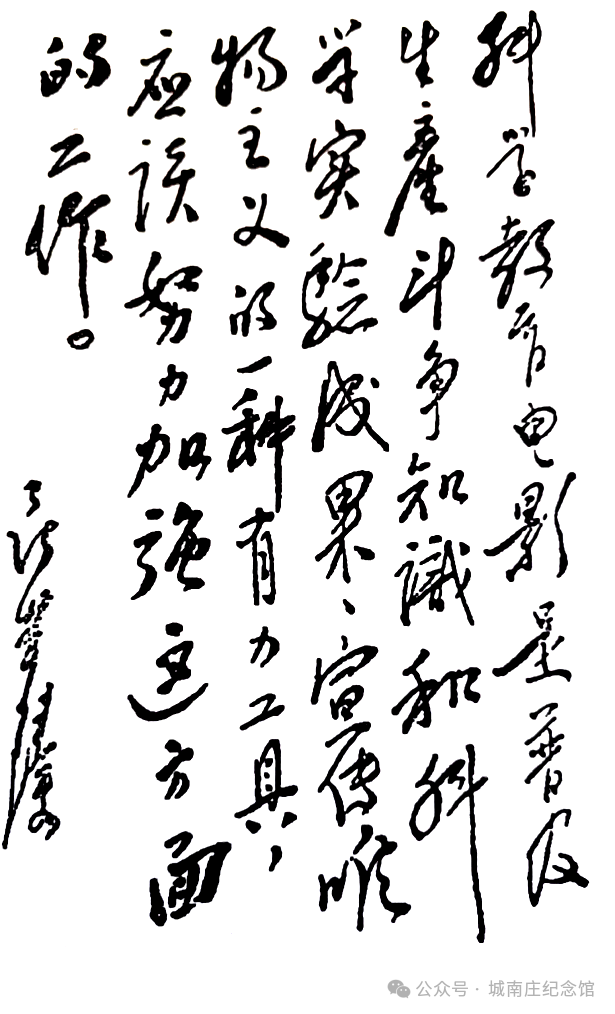 科学教育电影是普及
生產斗争知識和科
学实驗成果、宣传唯
物主义的一种有力工具，
应该努力加強这方面
的工作。
公众号·城南庄纪念馆